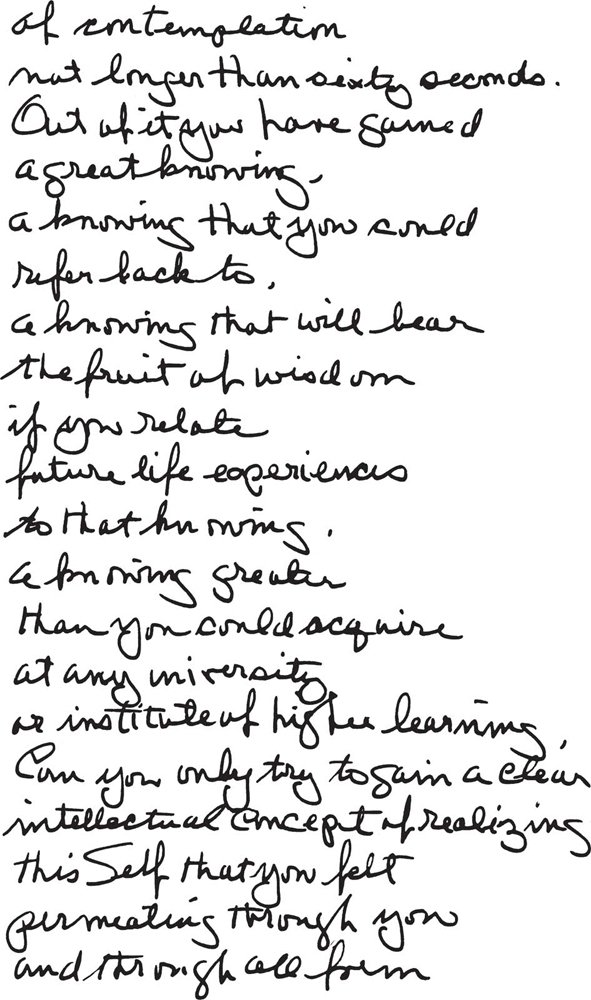 of contemplation
not longer than sixty seconds.
Out of it you have gained
a great knowing,
a knowing that you could
refer back to,
a knowing that will bear
the fruit of wisdom
if you relate
future life experiences
to that knowing,
a knowing greater
than you could acquire
at any university
or institute of higher learning.
Can you only try to gain a clear
intellectual concept of realizing
this Self that you felt
permeating through you
and through all form